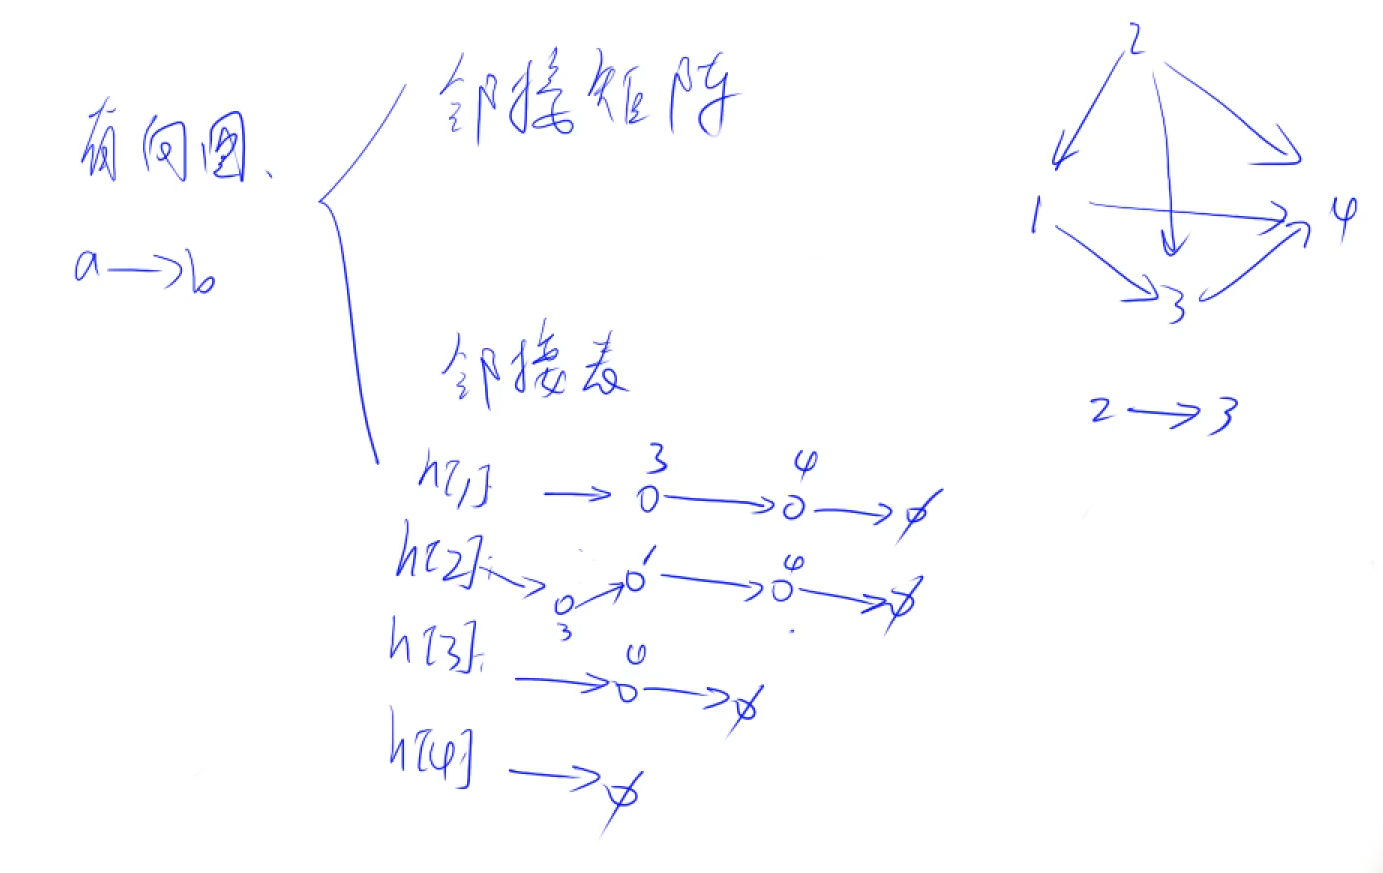 有向图、
a→b
邻接矩阵
邻接表
h[1]: → 3 → 4 → ∅
h[2]: → 3 → 1 → 4 → ∅
h[3]: → 4 → ∅
h[4] → ∅
2
1
4
3
2→3